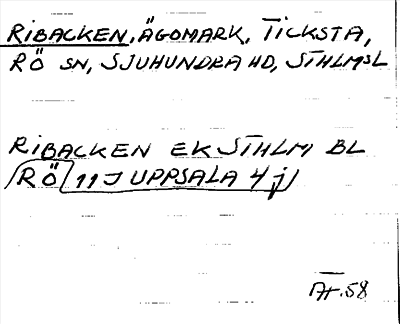 RIBACKEN, ÄGOMARK, TICKSTA,
RÖ SN, SJUHUNDRA HD, STHLMSL
RIBACKEN EK STHLM BL
RÖ 11J UPPSALA 4j
Ar. 58